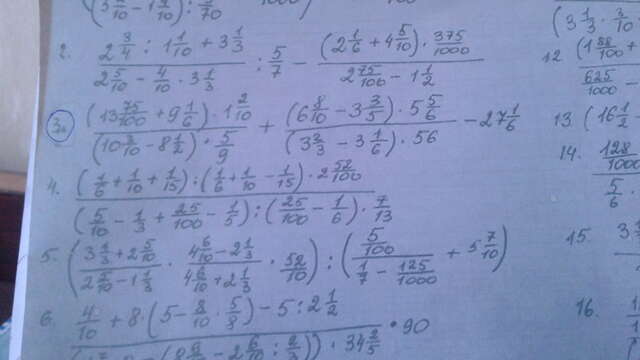 (3 5/10 - 1 9/10) : 3/70
2. (2 3/4 : 1 1/10 + 3 1/3)/(2 5/10 - 4/10 · 3 1/3) : 5/7 - ((2 1/6 + 4 5/10) · 375/1000)/(2 75/100 - 1 1/2)
3. ((13 75/100 + 9 1/6) · 1 2/10)/((10 3/10 - 8 1/2) · 5/9) + ((6 8/10 - 3 3/5) · 5 5/6)/((3 2/3 - 3 1/6) · 56) - 27 1/6
4. ((1/6 + 1/10 + 1/15) : (1/6 + 1/10 - 1/15) · 2 52/100)/((5/10 - 1/3 + 25/100 - 1/5) : (25/100 - 1/6) · 7/13)
5. ((3 1/3 + 2 5/10)/(2 5/10 - 1 1/3) · (4 6/10 - 2 1/3)/(4 6/10 + 2 1/3) · 52/10) : ((5/100)/(1/7 - 125/1000) + 5 7/10)
6. (4/10 + 8 · (5 - 8/10 · 5/8) - 5 : 2 1/2)/( · 34 2/5) · 90
(3 1/3 · 3/10
12. (1 88/100 +
625/1000 -
13. (16 1/2
14. 128/1000
5/6 ·
15. 3
16. 1